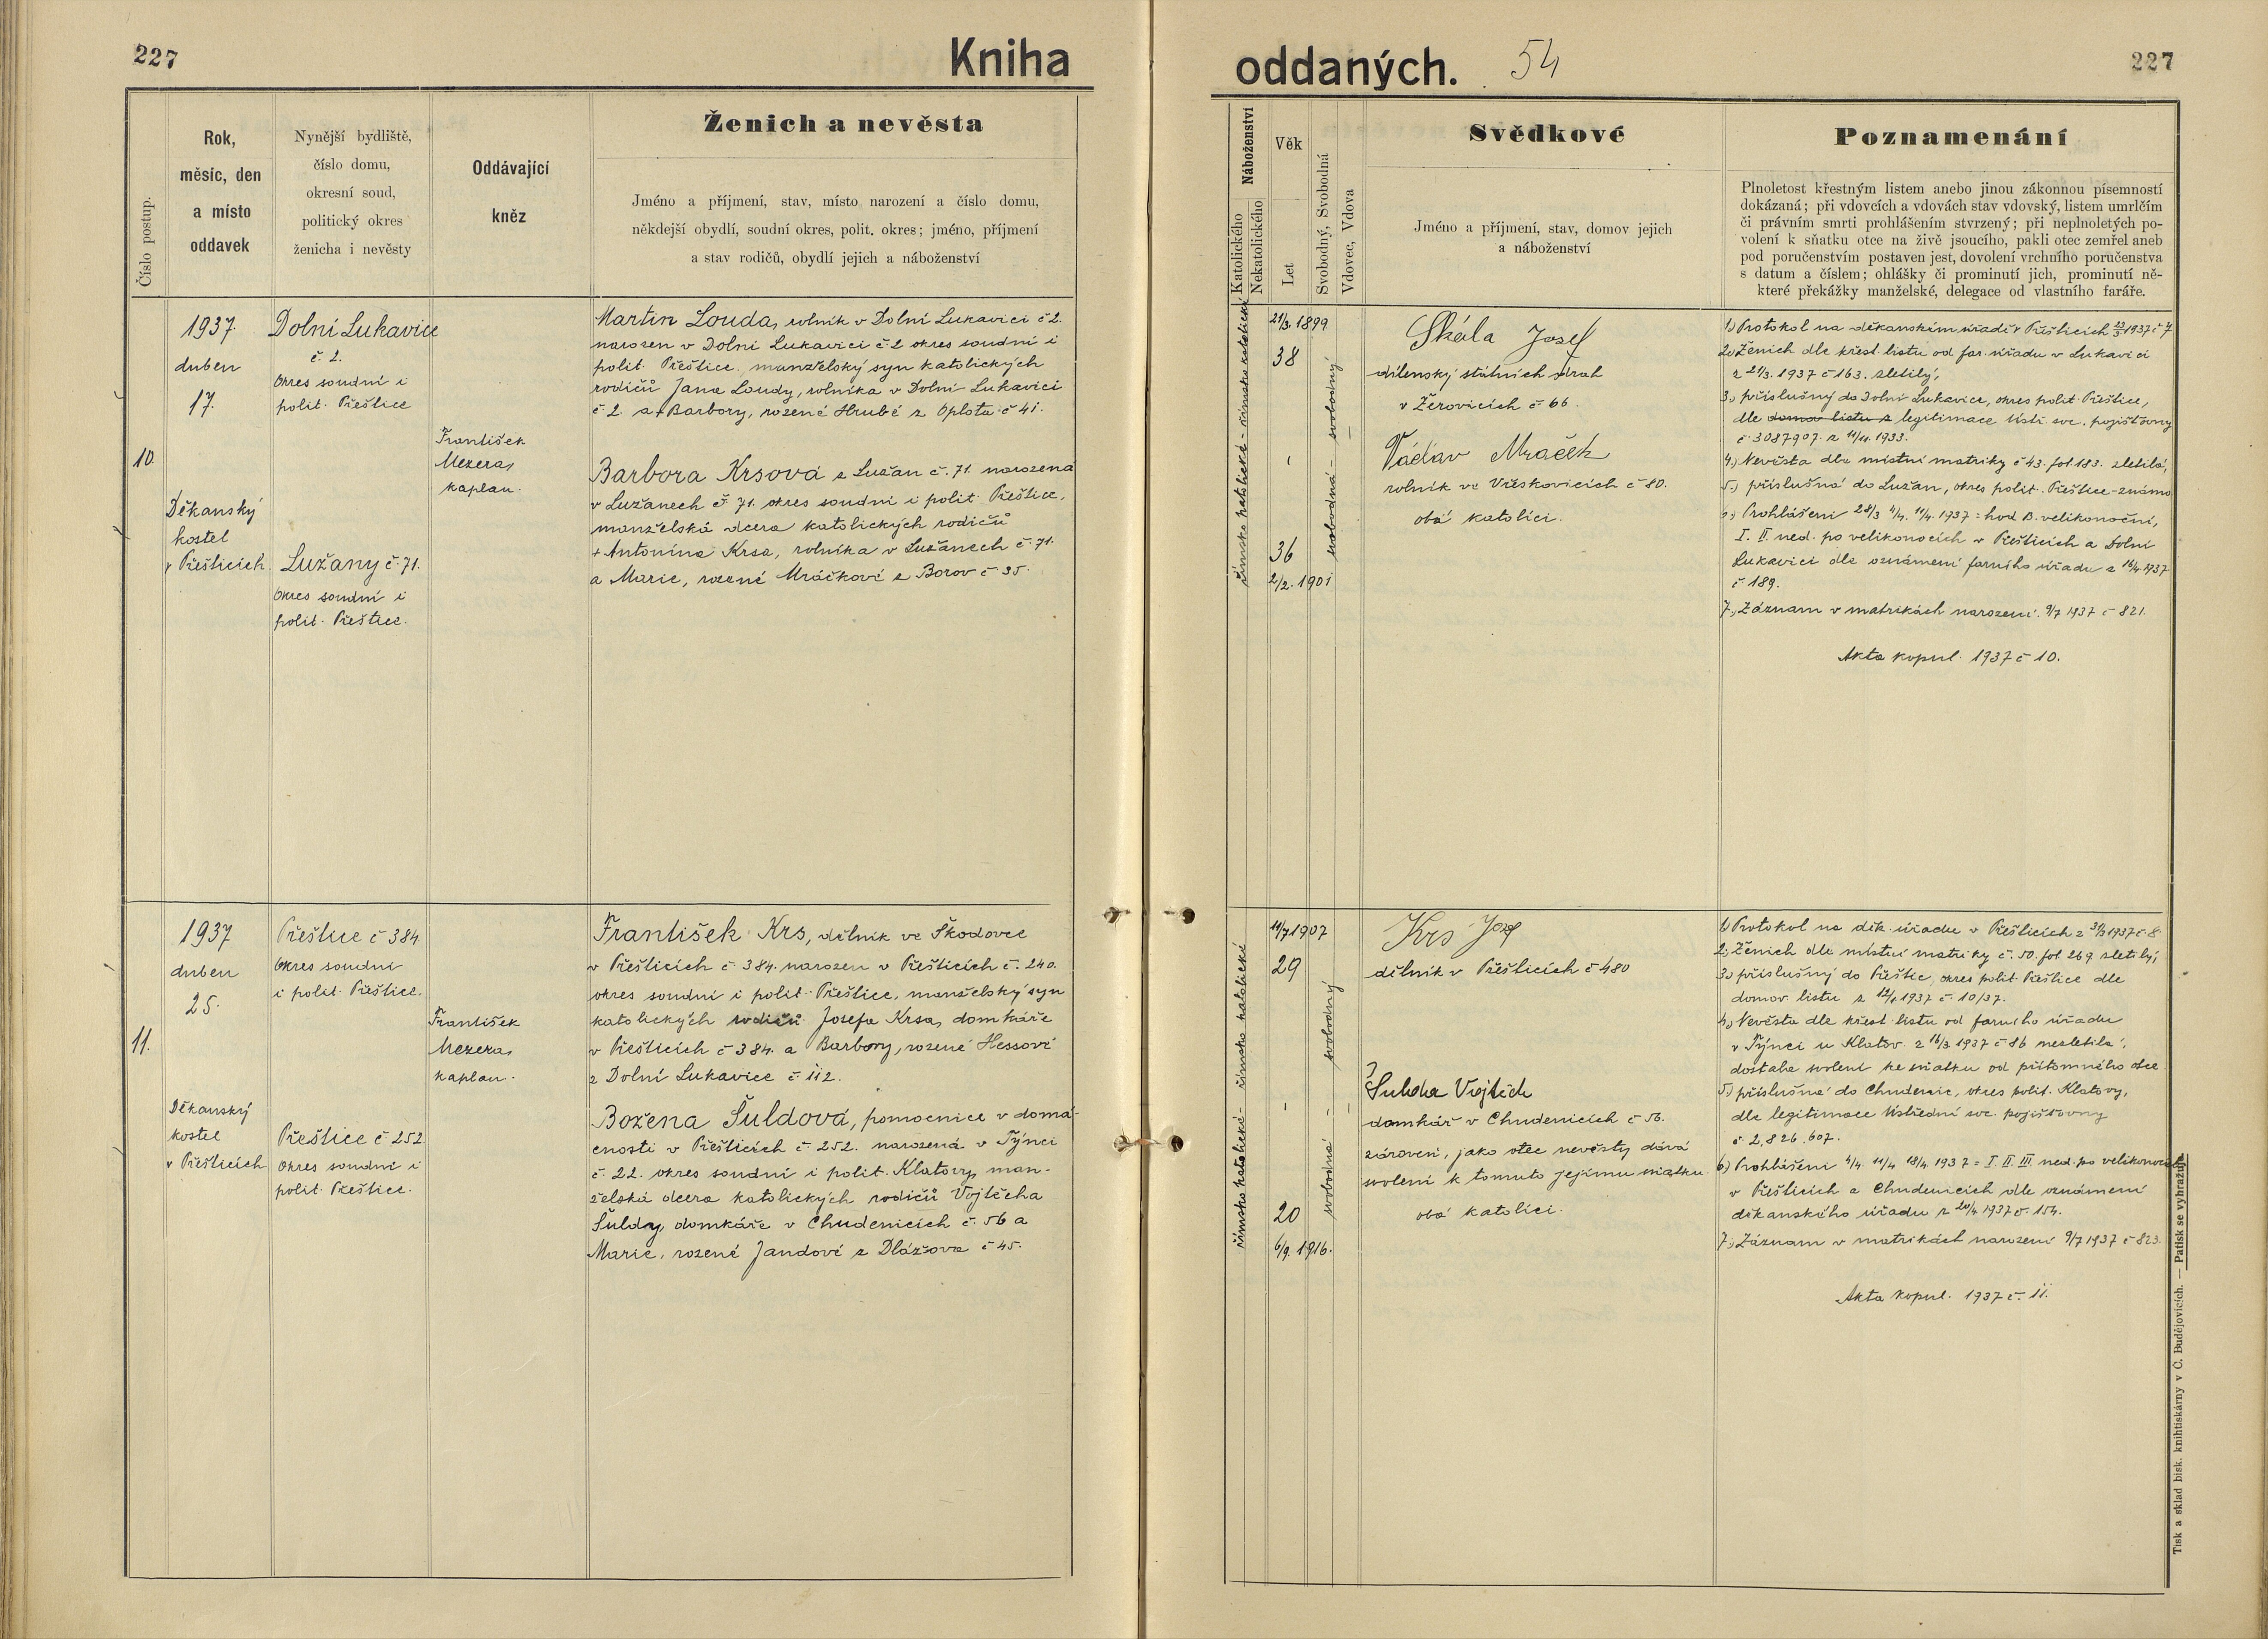 227
Kniha
Číslo postup.
Rok,
měsíc, den
a místo
oddavek
Nynější bydliště,
číslo domu,
okresní soud,
politický okres
ženicha i nevěsty
Oddávající
kněz
Ženich a nevěsta
Jméno a příjmení, stav, místo narození a číslo domu,
někdejší obydlí, soudní okres, polit. okres; jméno, příjmení
a stav rodičů, obydlí jejich a náboženství
10.
1937.
duben
17.
Děkanský
kostel
v Přešticích.
Dolní Lukavice
č. 2.
okres soudní i
polit. Přeštice
Lužany č. 71.
okres soudní i
polit. Přeštice.
František
Mezera,
kaplan.
Martin Louda, rolník v Dolní Lukavici č 2.
narozen v Dolní Lukavici č. 2 okres soudní i
polit. Přeštice, manželský syn katolických
rodičů Jana Loudy, rolníka v Dolní Lukavici
č. 2. a + Barbory, rozené Hrubé z Oplota č 41.
Barbora Krsová z Lužan č. 71. narozena
v Lužanech č. 71. okres soudní i polit. Přeštice,
manželská dcera katolických rodičů
+ Antonína Krsa, rolníka v Lužanech č. 71.
a Marie, rozené Mráčkové z Borov č 35.
11.
1937
duben
25.
Děkanský
kostel
v Přešticích
Přeštice č 384.
okres soudní
i polit. Přeštice.
Přeštice č 252.
okres soudní i
polit. Přeštice.
František
Mezera,
kaplan.
František Krs, dělník ve Škodovce
v Přešticích č 384. narozen v Přešticích č. 240.
okres soudní i polit. Přeštice, manželský syn
katolických rodičů Josefa Krsa, domkáře
v Přešticích č 384. a Barbory, rozené Hessové
z Dolní Lukavice č. 112.
Božena Šuldová, pomocnice v domá-
cnosti v Přešticích č. 252. narozená v Týnci
č. 22. okres soudní i polit. Klatovy, man-
želská dcera katolických rodičů Vojtěcha
Šuldy, domkáře v Chudenicích č. 56 a
Marie, rozené Jandové z Dlážova č 45.
oddaných.
54
227
Náboženství
Katolického
Nekatolického
Věk
Let
Svobodný, Svobodná
Vdovec, Vdova
Svědkové
Jméno a příjmení, stav, domov jejich
a náboženství
Poznamenání
Plnoletost křestným listem anebo jinou zákonnou písemností
dokázaná; při vdovcích a vdovách stav vdovský, listem umrlčím
či právním smrti prohlášením stvrzený; při neplnoletých po-
volení k sňatku otce na živě jsoucího, pakli otec zemřel aneb
pod poručenstvím postaven jest, dovolení vrchního poručenstva
s datum a číslem; ohlášky či prominutí jich, prominutí ně-
které překážky manželské, delegace od vlastního faráře.
římsko katolické - římsko katolické
21/3. 1899
38
36
2/2. 1901
svobodná - svobodný
Skála Josef
dílenský státních drah
v Žerovicích č 66.
Václav Mraček
rolník ve Vřeskovicích č 80.
oba katolíci.
1.) Protokol na děkanském úřadě v Přešticích 23/3 1937 č 7
2.) Ženich dle křest. listu od far. úřadu v Lukavici
z 21/3. 1937 č 163. zletilý,
3.) příslušný do Dolní Lukavice, okres polit. Přeštice,
dle domov. listu z legitimace Ústř. soc. pojišťovny
č. 3087907. z 11/11. 1933.
4.) Nevěsta dle místní matriky č 43. fol 183. zletilá,
5.) příslušná do Lužan, okres polit. Přeštice - známo
6.) Prohlášeni 28/3 4/4. 11/4. 1937 = hod B. velikonoční,
I. II. ned. po velikonocích v Přešticích a Dolní
Lukavici dle oznámení farního úřadu z 16/4 1937
č 189.
7.) Záznam v matrikách narození. 9/7 1937 č 821.
Akta kopul. 1937 č 10.
římsko katolické - římsko katolické
11/7 1907
29
20
6/9. 1916.
svobodná - svobodný
Krs Josef
dělník v Přešticích č 480
Šulda Vojtěch
domkář v Chudenicích č 56.
zároveň, jako otec nevěsty dává
svolení k tomuto jejímu sňatku
oba katolíci.
1.) Protokol na děk. úřadu v Přešticích z 31/3 1937 č. 8.
2.) Ženich dle místní matriky č. 50. fol 269 zletilý,
3.) příslušný do Přeštic, okres polit. Přeštice dle
domov. listu z 12/1 1937 č. 10/37.
4.) Nevěsta dle křest. listu od farního úřadu
v Týnci u Klatov z 16/3 1937 č 86 nezletilá,
dostala svolení ke sňatku od přítomného otce
5.) příslušná do Chudenic, okres polit. Klatovy,
dle legitimace Ústřední soc. pojišťovny
č. 2,826.607.
6.) Prohlášeni 4/4. 11/4 18/4. 1937 = I. II. III. ned. po velikonocích
v Přešticích a Chudenicích dle oznámení
děkanského úřadu z 20/4 1937 č. 154.
7.) Záznam v matrikách narození 9/7 1937 č 823.
Akta kopul. 1937 č. 11.
Tisk a sklad bisk. knihtiskárny v Č. Budějovicích. — Patisk se vyhražuje.